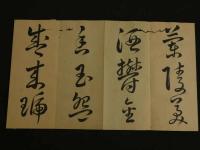 蘭陵美
酒鬱金
香玉盌
盛來琥